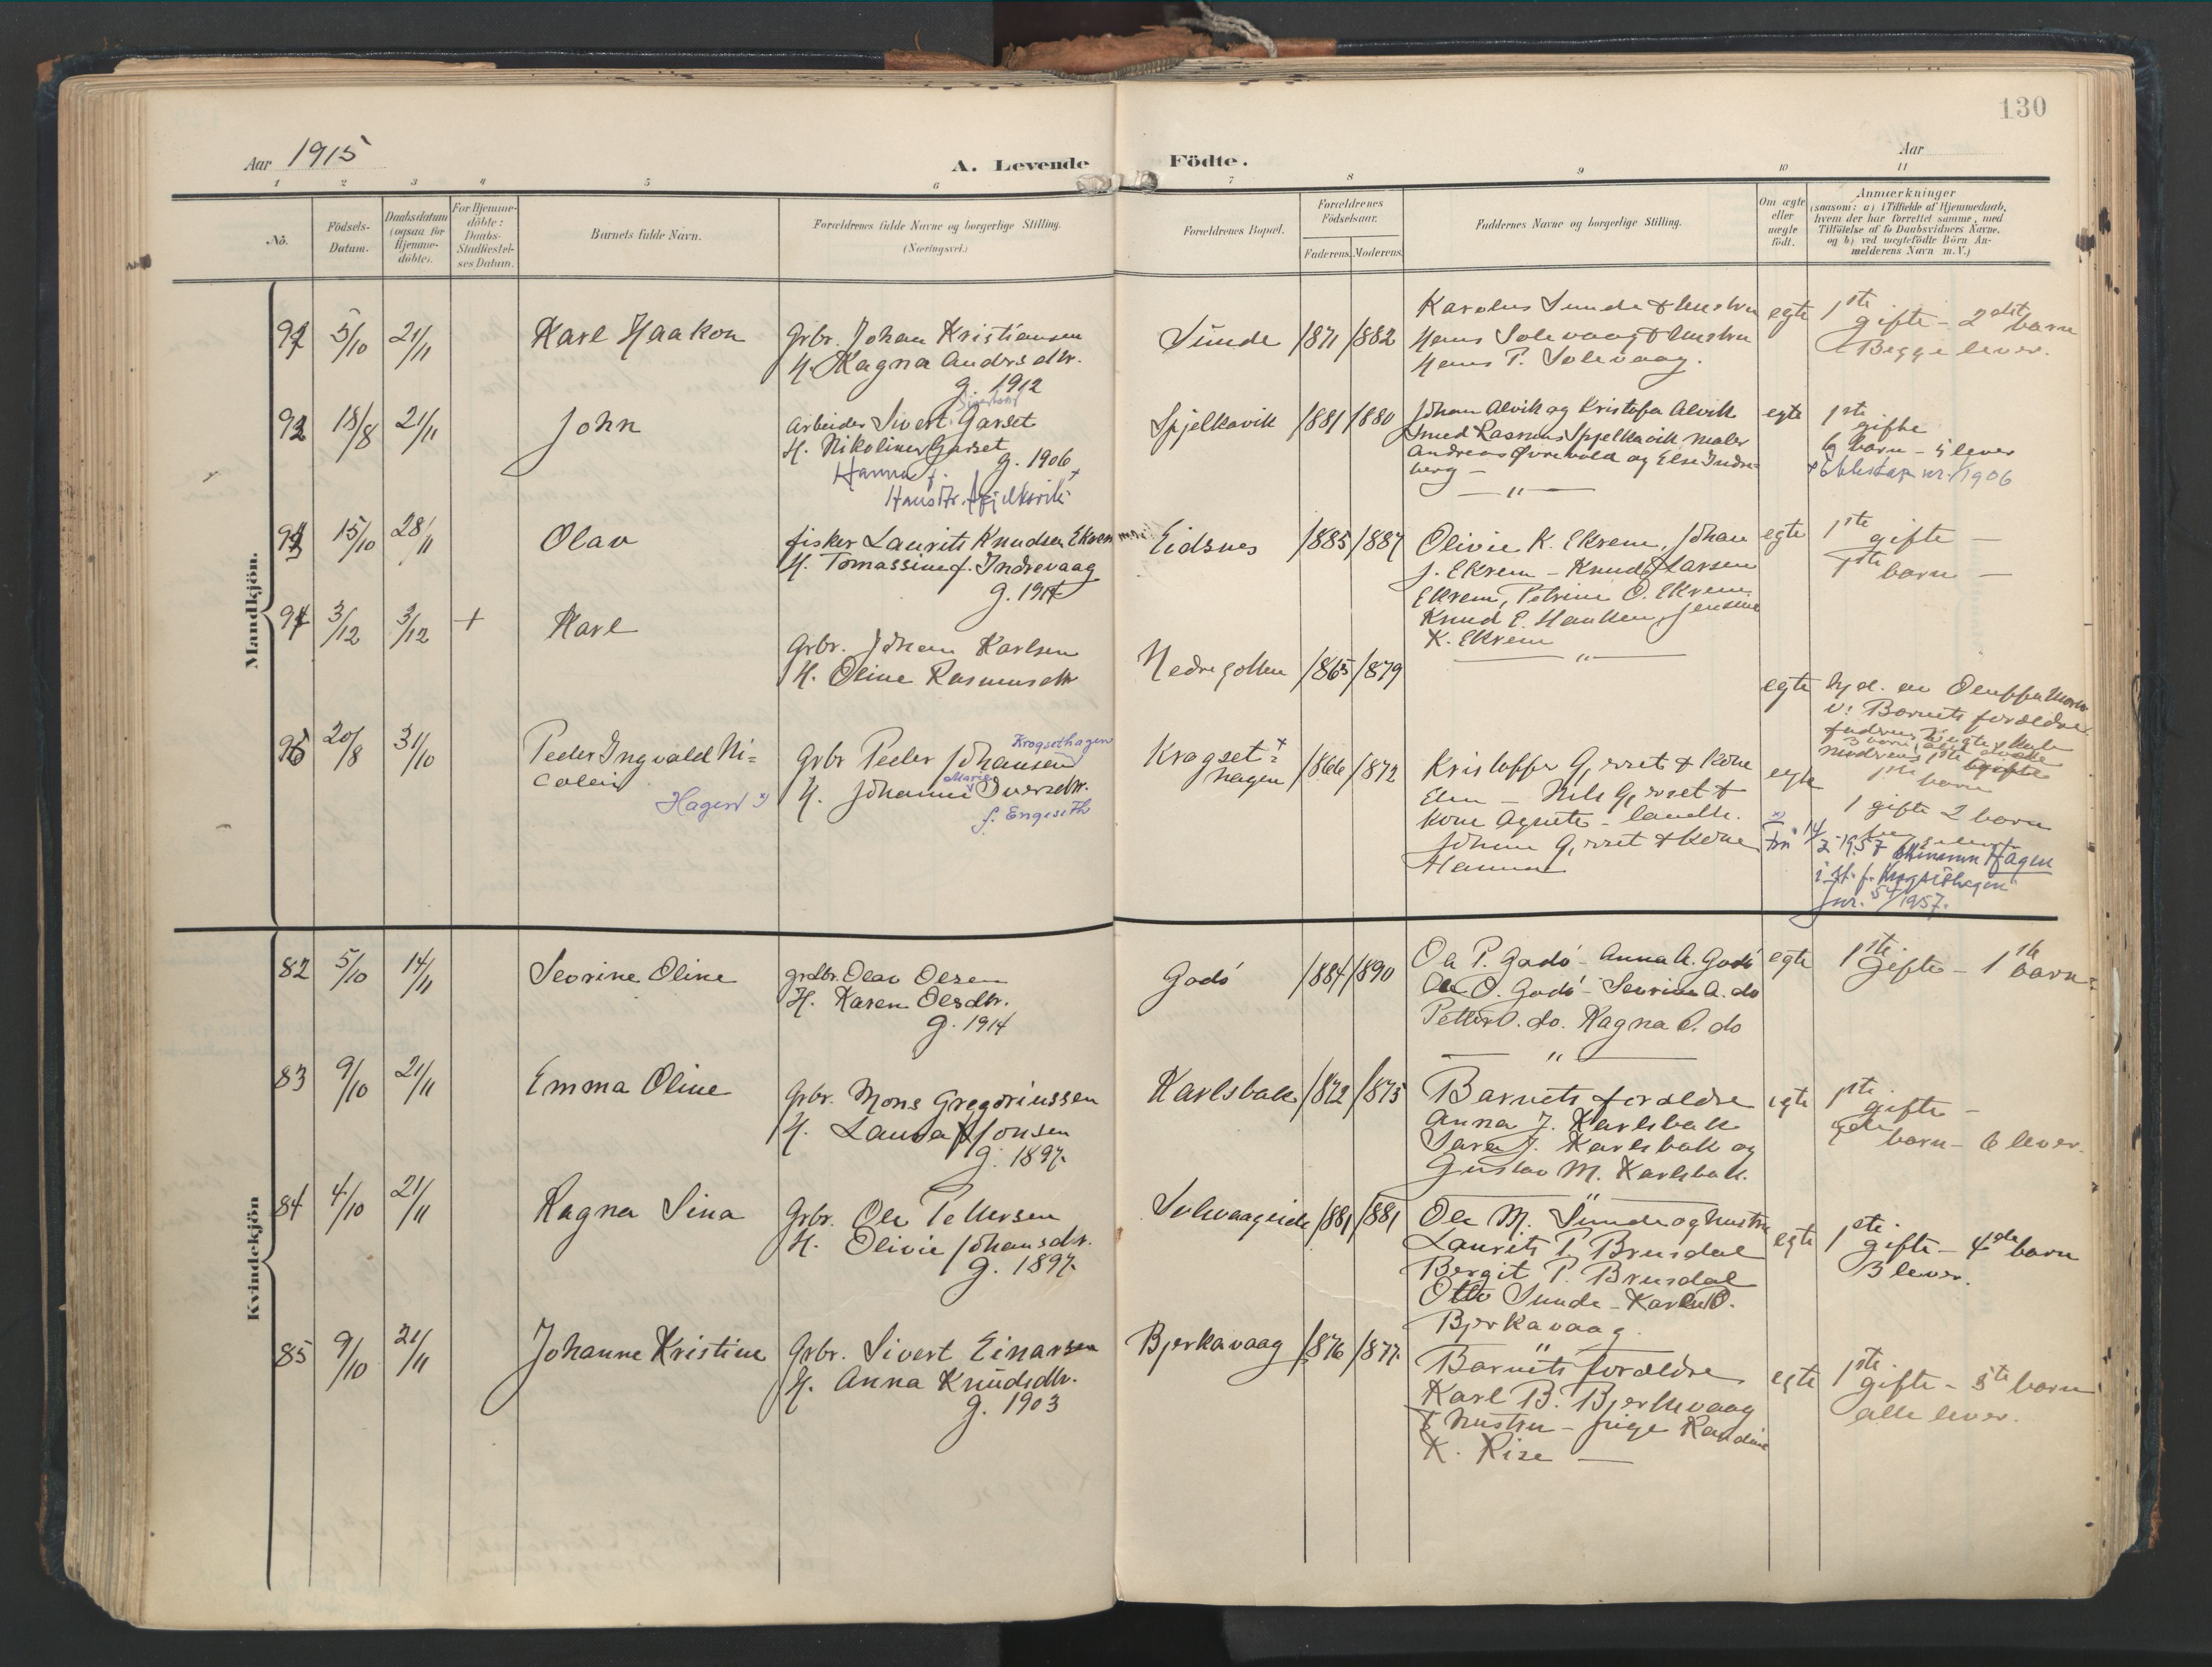 130
Aar 1915
A. Levende Födte.
Aar
1 2 3 4 5 6 7 8 9 10 11
No.
Födsels-
Datum.
Daabsdatum
(ogsaa for
Hjemme-
döbte).
For Hjemme-
döbte:
Daabs-
Stadfæstel-
ses Datum.
Barnets fulde Navn.
Forældrenes fulde Navne og borgerlige Stilling.
(Næringsvei.)
Forældrenes Bopæl.
Forældrenes
Födselsaar.
Faderens. Moderens.
Faddernes Navne og borgerlige Stilling.
Om ægte
eller
uægte
födt.
Anmærkninger
(saasom: a) i Tilfælde af Hjemmedaab,
hvem der har forrettet samme, med
Tilföielse af to Daabsvidners Navne,
og b) ved uægtefödte Börn An-
melderens Navn m.V.)
Mandkjön.
5/10 21/11 Karl Haakon
Grbr. Johan Kristiansen
H. Ragna Andrsdtr.
g. 1912
Sunde 1871 1882
Karolus Sunde & hustru
Hans Solevaag & hustru
Hans P. Solevaag.
egte
1ste gifte - 2det barn
Begge lever.
18/8 21/11 John
Arbeider Sivert Garset
H. Nikoline Garset
g. 1906
Hanna f.
Hansdtr. Spjelkavik x
Spjelkavik 1881 1880
Johan Alvik og Kristofa Alvik
Smed Rasmus Spjelkavik Maler
Andreas Øvrevold og Else Indre-
berg -
- " -
egte
1ste
gifte
6 barn - 5 lever
15/10 28/11 Olav
fisker Laurits Knudsen Ekrem
H. Tomassine f. Indrevaag
g. 1914
Eidsnes 1885 1887
Olivie K. Ekrem, Johan
J. Ekrem - Knud Larsen
Ekrem, Petrine O. Ekrem
Knud E. Hauken, Jensine
K. Ekrem
- " -
egte
1ste gifte -
1ste barn -
94 3/12 3/12 + Karl
Grbr. Johan Karlsen
H. Oline Rasmusdtr
Nedregotten 1865 1879
egte
v: Barnets forældre
1ste barn
20/8 31/10 Peder Ingvald Ni=
colai
Hagen x)
Krogsethagen
Grbr Peder Johansen
Marie
H. Johanne Iversdtr.
f. Engeseth
Kragset- x
hagen 1866 1872
Kristoffer Gjørset & Kone
Elen - Nils Gjørset &
Kone Agnete -
Johan Gjørset & Kone
Hanna
egte
1 gifte 2 barn
14/2 - 1957 Hagen
i st. f. Krogsethagen
Jnr. 54/1957.
Kvindekjön
82 5/10 14/11 Sevrine Oline
grdbr. Olav Olsen
H. Karen Olsdtr.
g. 1914
Godö 1884 1890
Ole P. Godö - Anna A. Godö
Ole O. Godö - Sevrine A. do
Petter O. do. Ragna P. do
- " -
egte
1ste gifte - 1ste barn
83 9/10 21/11 Emma Oline
Grbr. Mons Gregoriussen
H. Laura Jonsen
g. 1897.
Karlsbak 1872 1875
Barnets forældre
Anna J. Karlsbak
Sara J. Karlsbak og
Gustav M. Karlsbak.
- " -
egte
1ste
gifte -
barn - 6 lever.
84 4/10 21/11 Ragna Sina
Grbr. Ole Pettersen
H. Olivie Johansdtr.
g. 1897.
Solevaageide 1881 1881
Ole M. Sunde og hustru
Laurits P. Brusdal
Bergit P. Brusdal
Otto Sunde - Karl O.
Bjerkavaag.
- " -
egte
1ste gifte - 4de barn
3 lever.
85 9/10 21/11 Johanne Kristine
Grbr. Sivert Einarsen
H. Anna Knudsdtr.
g. 1903
Bjerkavaag 1876 1877
Barnets forældre
Karl B. Bjerkevaag
& hustru - pige Randine
K. Rise -
egte
1ste gifte - 5te barn
alle lever.